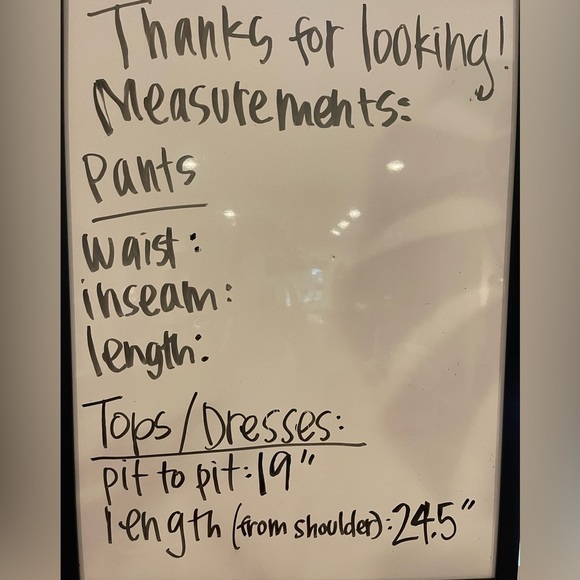 Thanks for looking!
Measurements:
Pants
waist:
inseam:
length:
Tops/Dresses:
pit to pit: 19"
length (from shoulder): 24.5"